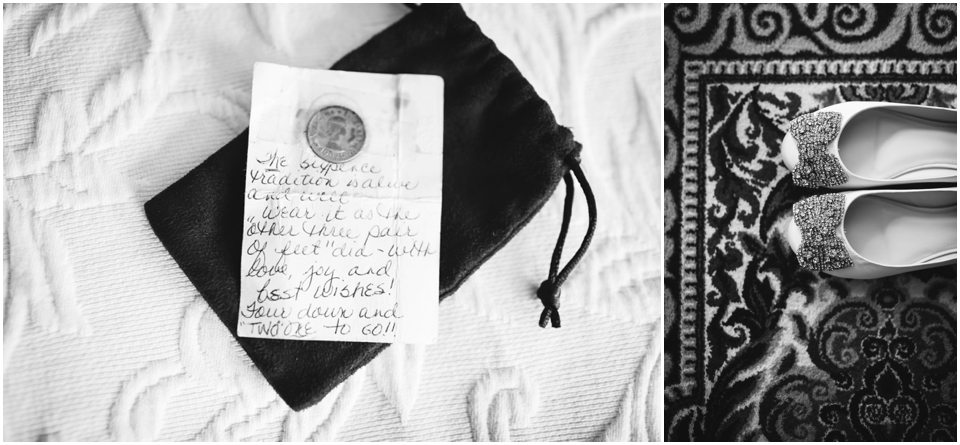 The sixpence
tradition is alive
and well
"Wear it as the
other three pair
of feet" did - with
love, joy and
best wishes!
Four down and
"TWO" ONE TO GO!!